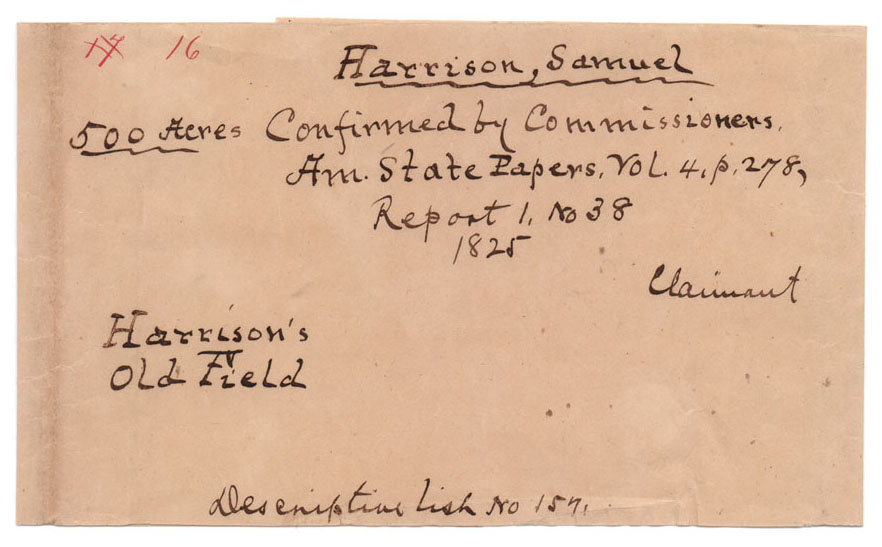 17 16
Harrison, Samuel
500 Acres Confirmed by Commissioners.
Am. State Papers. Vol. 4, p. 278,
Report 1, No 38
1825
Claimant
Harrison's
Old Field
Descriptive list No 157.